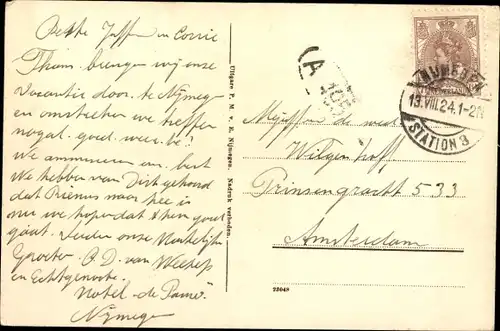 Beste Jaffen en Corrie
Thans brengen wij onze
vacantie door te Nijmegen
en omstreken we treffen
nogal goed weer hè?
We amuseeren ons best
We hebben van Dirk gehoord
dat Rienus naar hee is
nu we hopen dat hem goed
gaat. Verder onze Hartelijke
Groeten
en Echtgenoote.
Hotel de Pome
Nijmegen
Uitgave F. M. v. E. Nijmegen. Nadruk verboden.
A
NIJMEGEN
13.VIII.24.1-2N
STATION 3
Mejuffen de wed
Wilgenhoff,
Prinsengracht 533
Amsterdam
22048